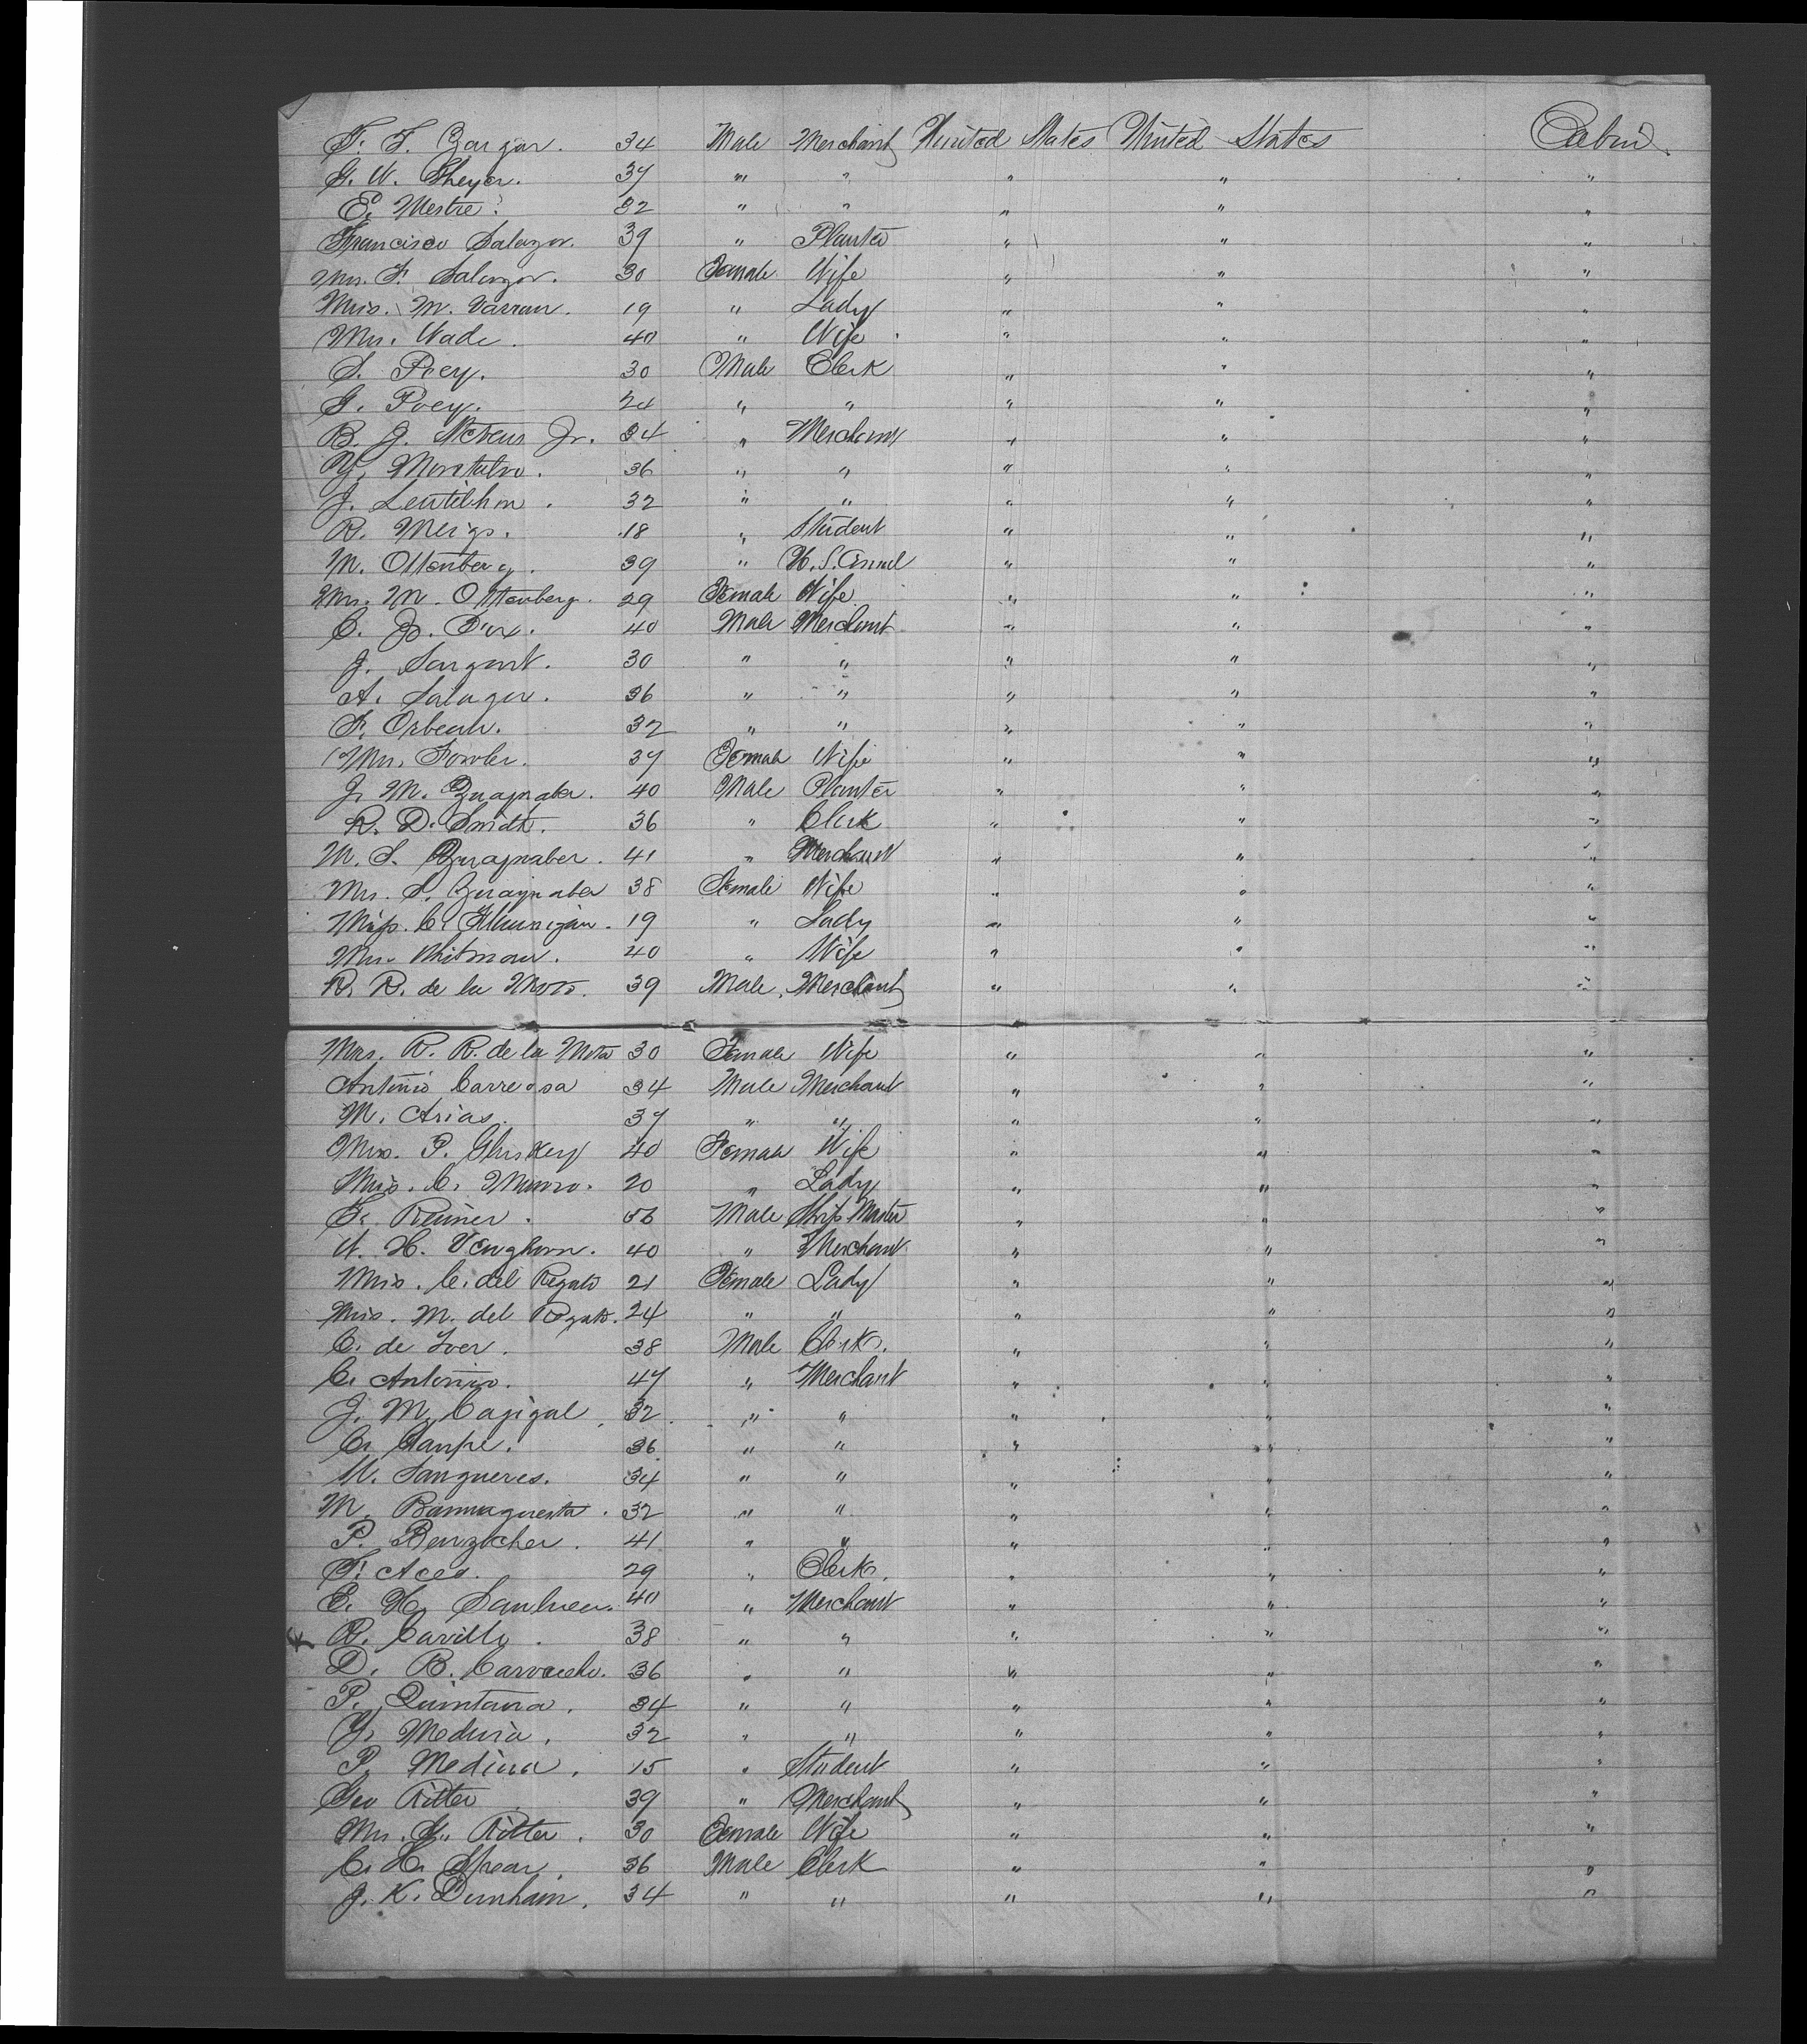 F. F. Zargar. 34 Male Merchant United States United States Cabin
G. W. Sheyer. 37 " " " " "
E. Mestre. 32 " " " " "
Francisco Salazar. 39 " Planter " " "
Mrs. F. Salazar. 30 Female Wife " " "
Miss. M. Varran. 19 " Lady " " "
Mrs. Wade. 40 " Wife " " "
S. Poey. 30 Male Clerk " " "
G. Poey. 24 " " " " "
B. J. Jr. 34 " Merchant " " "
Y. Montalvo. 36 " " " " "
J. Lentilhon. 32 " " " " "
R. Meigs. 18 " Student " " "
M. Ottenberg. 39 " U. S. " " "
Mrs. M. Ottenberg. 29 Female Wife " " "
C. 40 Male Merchant " " "
J. Sargent. 30 " " " " "
A. Salazar. 36 " " " " "
F. Orbeah. 32 " " " " "
Mrs. Fowler. 37 Female Wife " " "
J. M. 40 Male Planter " " "
R. D. Smith. 36 " Clerk " " "
M. S. 41 " Merchant " " "
Mrs. S. 38 Female Wife " " "
Miss. C. Flannigan. 19 " Lady " " "
Mrs. Whitmour. 40 " Wife " " "
R. R. de la Mota. 39 Male Merchant " " "
Mrs. R. R. de la Mota 30 Female Wife " " "
Antonio Carreosa 34 Male Merchant " " "
M. Arias. 37 " " " " "
Mrs. P. Gluskey 40 Female Wife " " "
Miss. C. Munro. 20 " Lady " " "
F. Reimer. 56 Male Ship Master " " "
W. H. Vaughorn. 40 " Merchant " " "
Miss. C. del Regato 21 Female Lady " " "
Miss. M. del Regato. 24 " " " " "
C. de Iver. 38 Male Clerk. " " "
C. Antonio. 47 " Merchant " " "
J. M. Cagigal 32 " " " " "
C. 36 " " " " "
W. Sangueres. 34 " " " " "
M. 32 " " " " "
P. Benzscher. 41 " " " " "
F. Aces. 29 " Clerk. " " "
E. H. 40 " Merchant " " "
R. Carillo. 38 " " " " "
D. B. 36 " " " " "
P. Quintana. 34 " " " " "
Y. Medina. 32 " " " " "
P. Medina. 15 " Student " " "
Geo Ritter 39 " Merchant " " "
Mrs. G. Ritter. 30 Female Wife " " "
C. H. Spear. 36 Male Clerk " " "
J. K. Dunham. 34 " " " " "